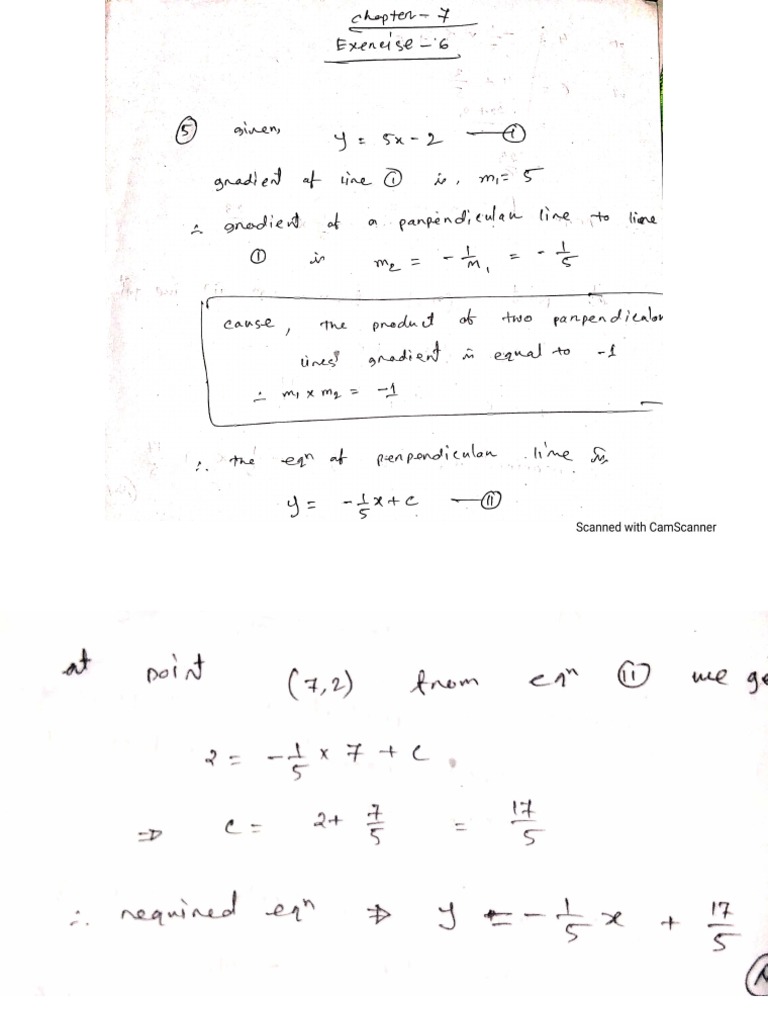 Chapter - 7
Exercise - 6
⑤ given, y = 5x - 2 —①
gradient of line ① is, m₁ = 5
∴ gradient of a panpendicular line to line
① is m₂ = - 1/m₁ = - 1/5
cause, the product of two panpendicular
lines' gradient is equal to -1
∴ m₁ × m₂ = -1
∴ the eqⁿ of perpendicular line is
y = - 1/5 x + c —⑪
Scanned with CamScanner
at point (7,2) from eqⁿ ⑪ we ge
2 = - 1/5 × 7 + c.
⇒ c = 2 + 7/5 = 17/5
∴ required eqⁿ ⇒ y = - 1/5 x + 17/5